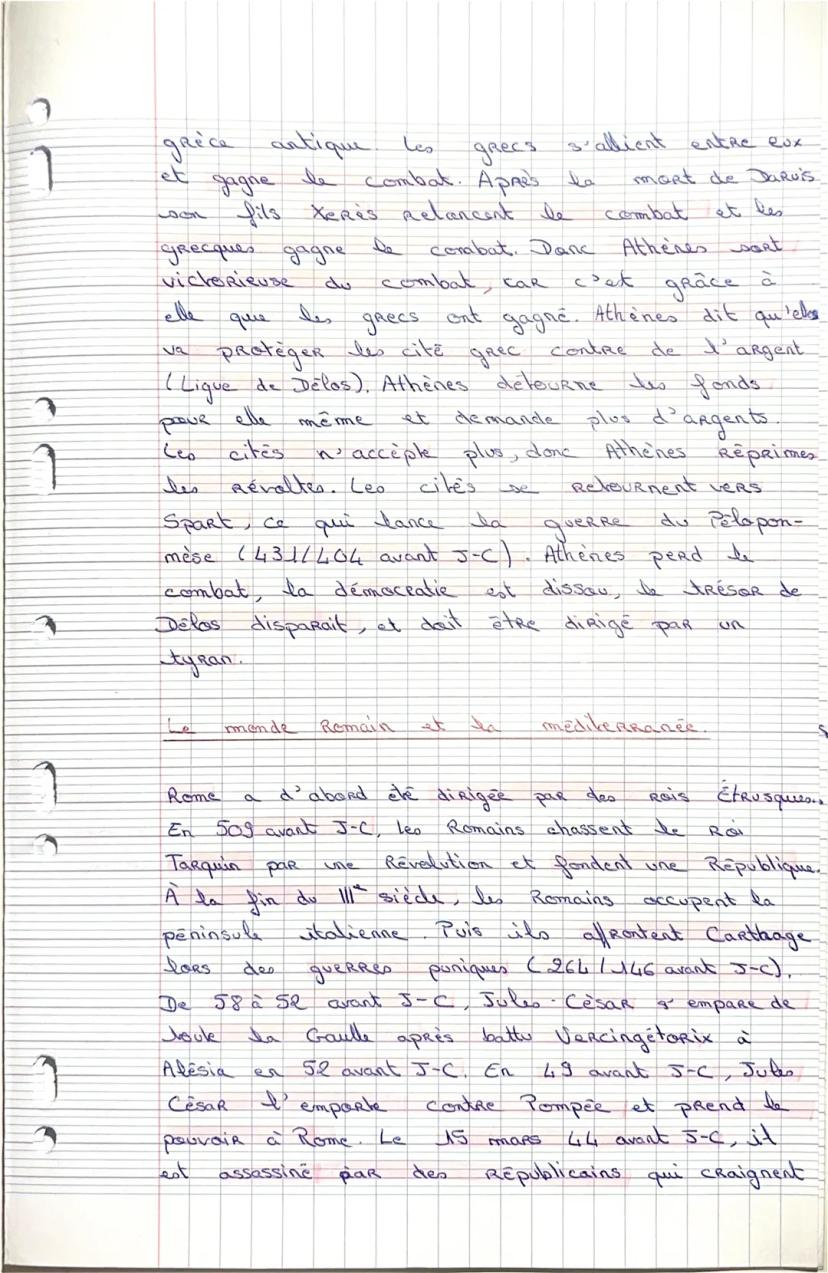 grèce antique. Les grecs s'allient entre eux
et gagne le combat. Après la mort de Darius
son fils Xerès relancent le combat et les
grecques gagne le combat. Donc Athènes sort
victorieuse du combat, car c'est grâce à
elle que les grecs ont gagné. Athènes dit qu'elles
va protéger les cité grec contre de l'argent
(Ligue de Délos). Athènes détourne les fonds
pour elle même et demande plus d'argents.
Les cités n'accèpte plus, donc Athènes réprimes
les révoltes. Les cités se retournent vers
Spart, ce qui lance la guerre du Pélopon-
mèse (431/404 avant J-C). Athènes perd le
combat, la démocratie est dissou, le trésor de
Délos disparait, et doit être dirigé par un
tyran.
Le monde Romain et la méditerranée.
Rome a d'abord été dirigée par des rois Étrusques.
En 509 avant J-C, les Romains chassent le Roi
Tarquin par une Révolution et fondent une République.
À la fin du IIIe siècle, les Romains occupent la
péninsule italienne. Puis ils affrontent Carthage
lors des guerres puniques (264/146 avant J-C).
De 58 à 52 avant J-C, Jules-César s'empare de
toute la Gaulle après battu Vercingétorix à
Alésia en 52 avant J-C. En 49 avant J-C, Jules
César l'emporte contre Pompée et prend le
pouvoir à Rome. Le 15 mars 44 avant J-C, il
est assassiné par des Républicains qui craignent